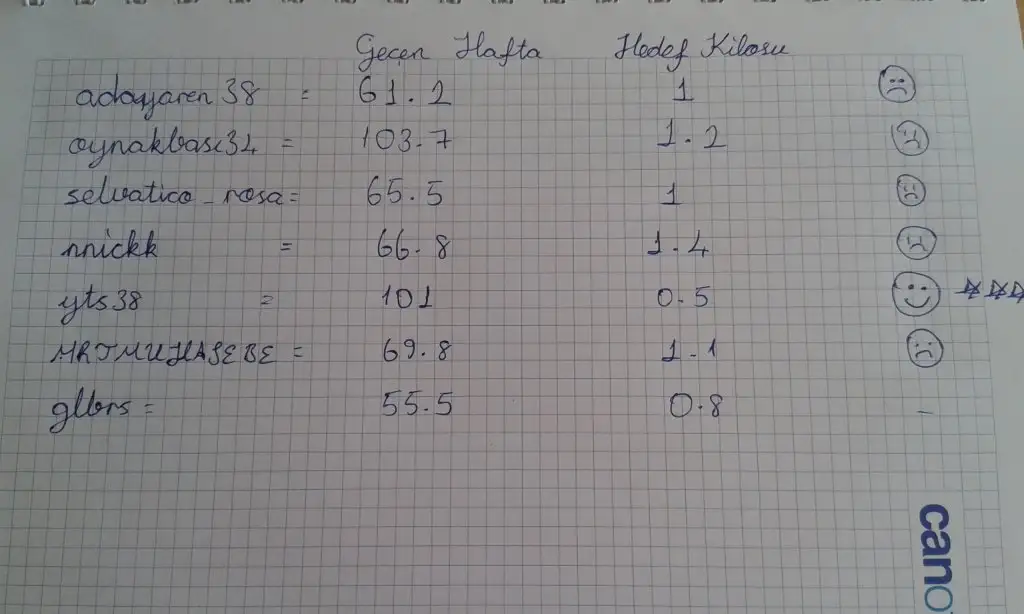 Geçen Hafta Hedef Kilosu
adayyaren38 = 61.2 1
oynakbasi34 = 103.7 1.2
selvatico_rosa = 65.5 1
nnickk = 66.8 1.4
yts38 = 101 0.5
MRTMUHASEBE = 69.8 1.1
glbrs = 55.5 0.8 -
cano